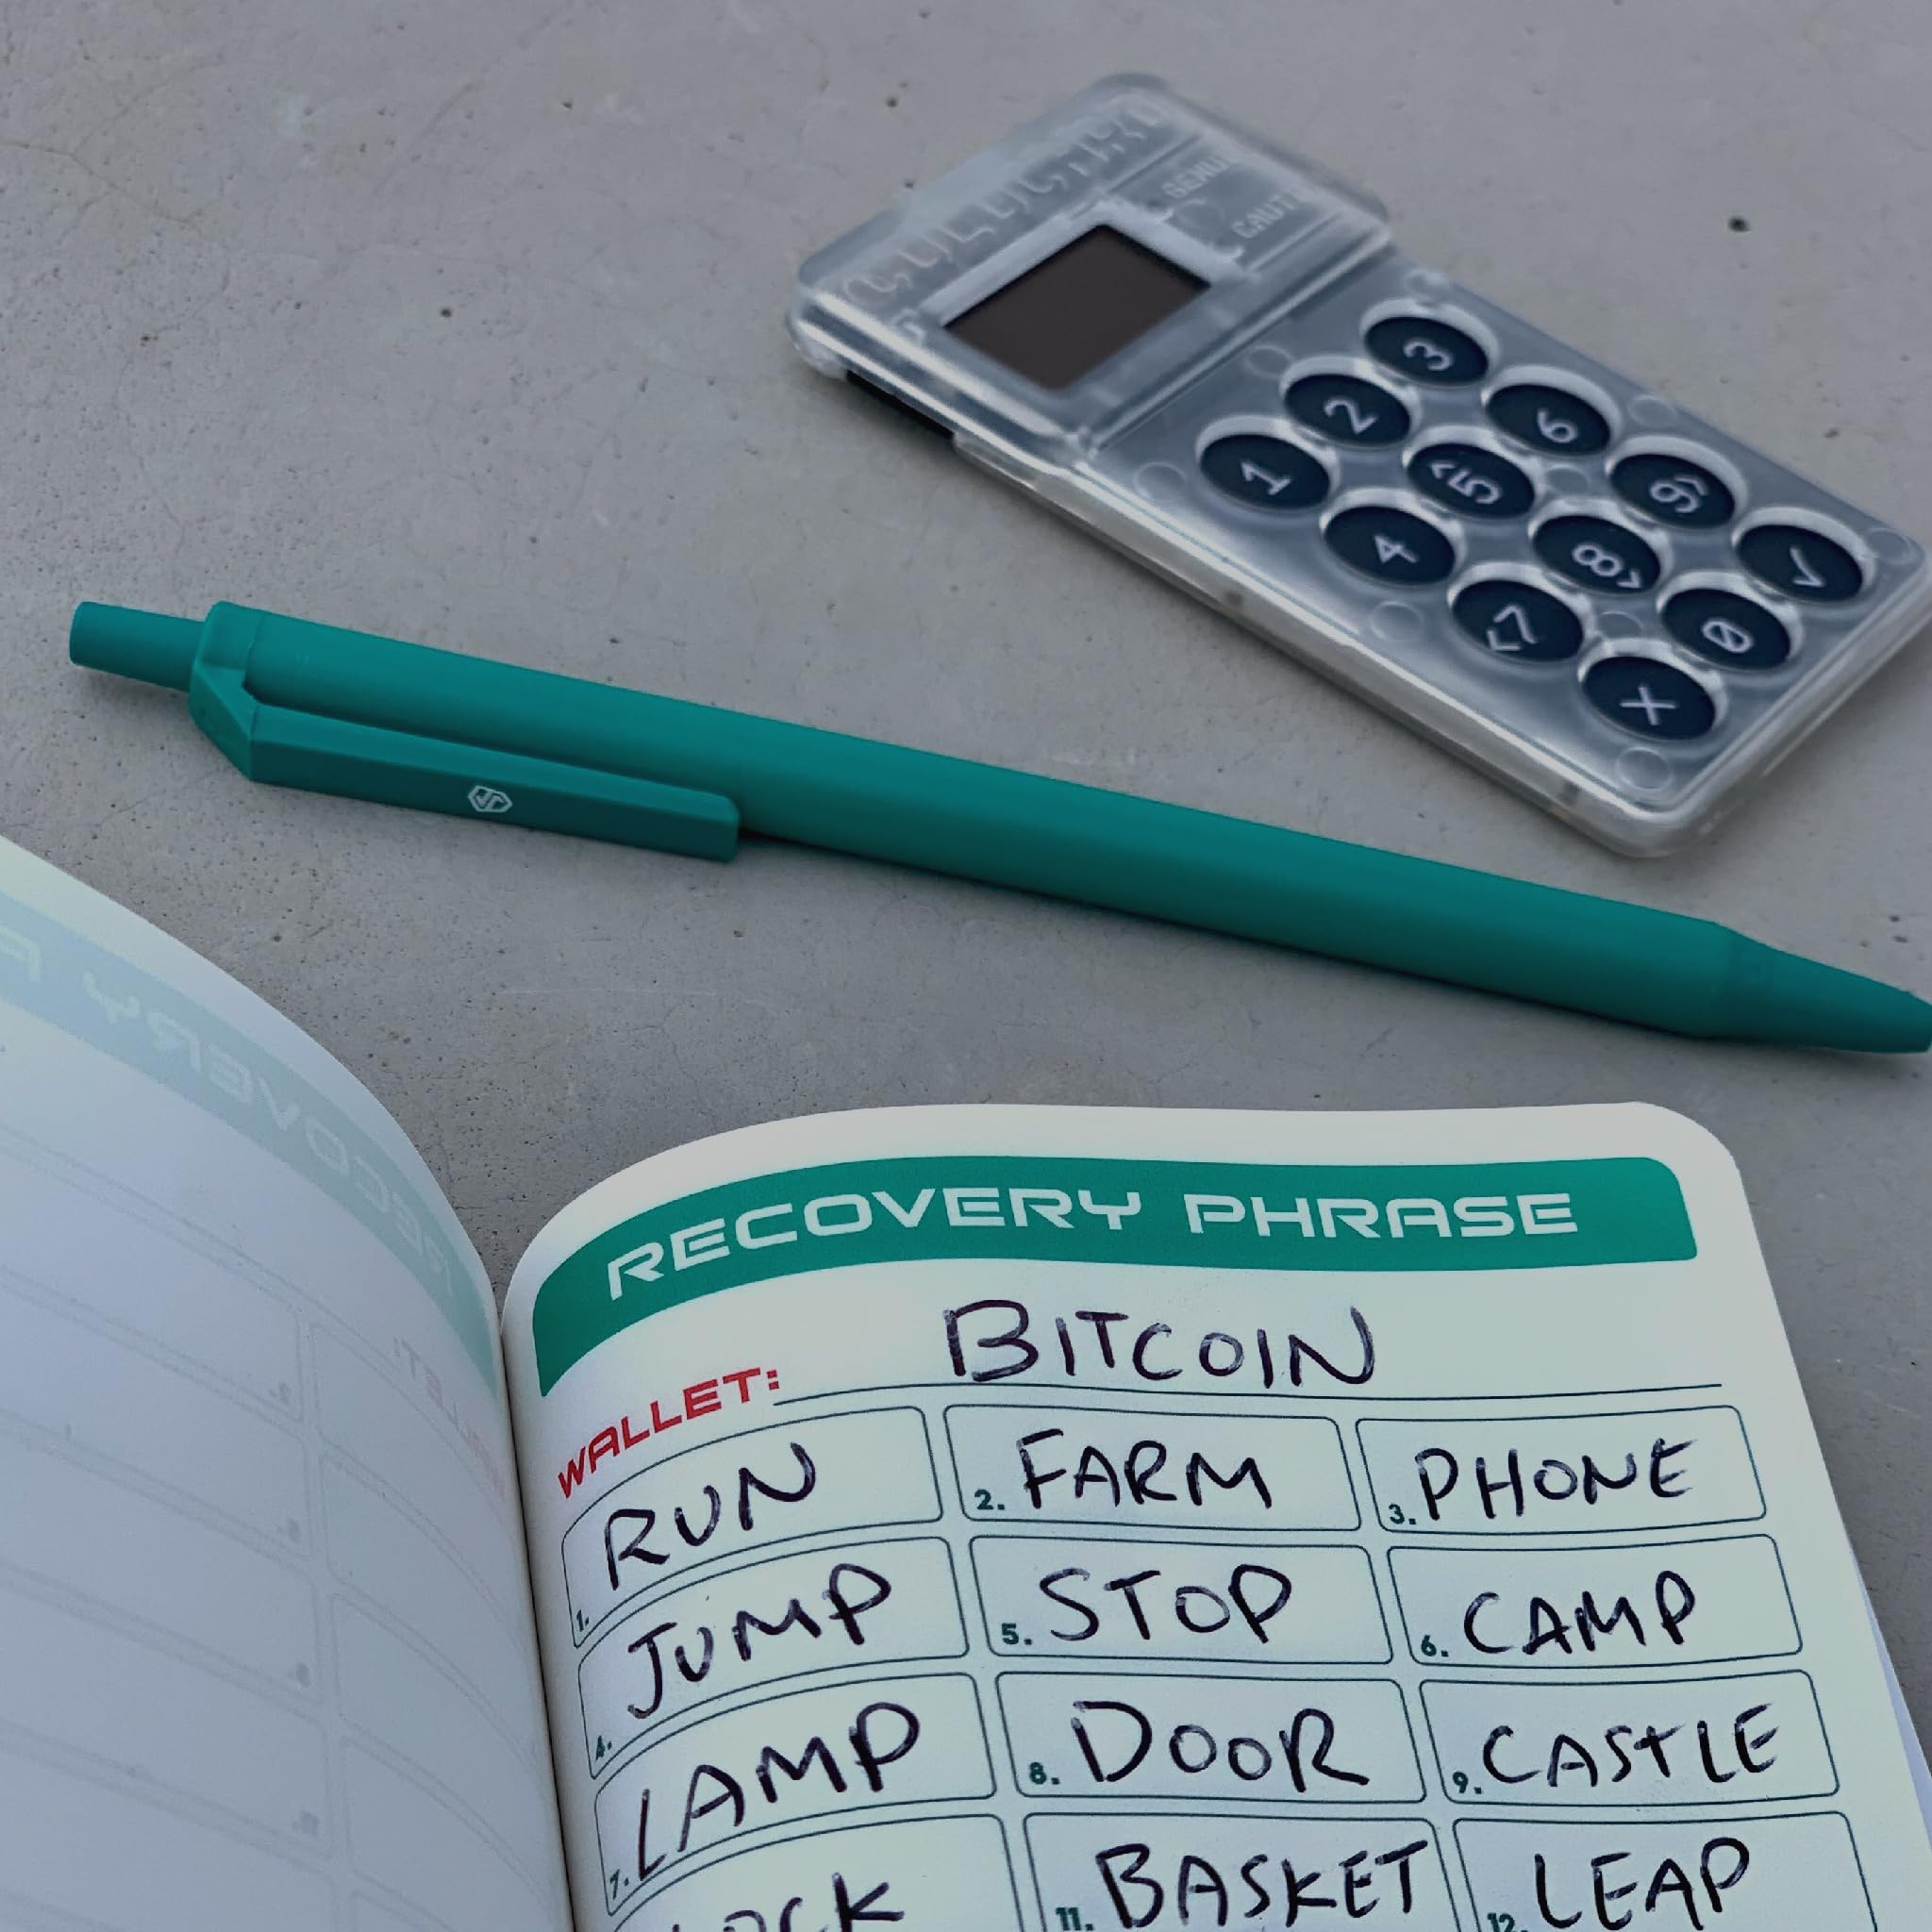 1 2 3
4 ^5 6
<7 8v 9>
X 0 ✓
RECOVERY PHRASE
WALLET: BITCOIN
1. RUN 2. FARM 3. PHONE
4. JUMP 5. STOP 6. CAMP
7. LAMP 8. DOOR 9. CASTLE
11. BASKET 12. LEAP